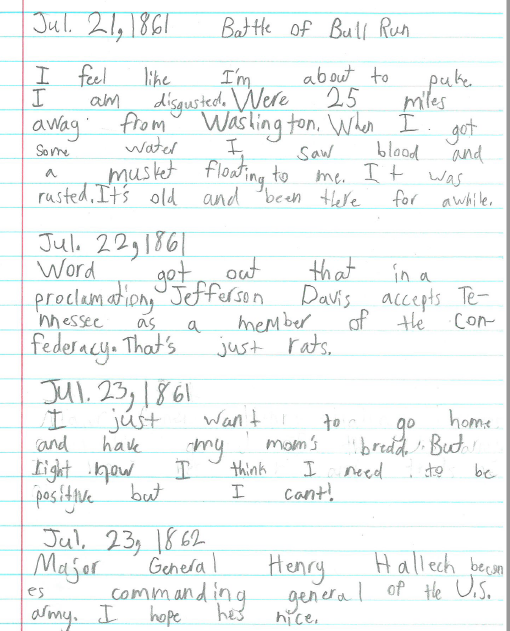 Jul. 21, 1861 Battle of Bull Run
I feel like I'm about to puke
I am disgusted. Were 25 miles
away from Washington. When I got
some water I saw blood and
a musket floating to me. It was
rusted. It's old and been there for awhile.
Jul. 22, 1861
Word got out that in a
proclamation, Jefferson Davis accepts Te-
nnessee as a member of the Con-
federacy. That's just rats.
Jul. 23, 1861
I just want to go home
and have my mom's bredd. But
right now I think I need to be
positive but I cant!
Jul. 23, 1862
Major General Henry Hallech becom
es commanding general of the U.S.
army. I hope hes nice.